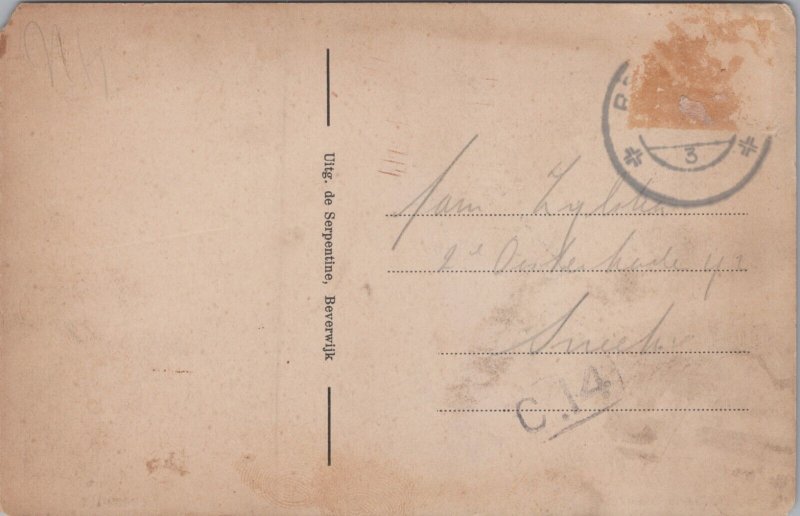 Uitg. de Serpentine, Beverwijk
3
fam Zylstra
2e Oosterkade 42
Sneek
C.14